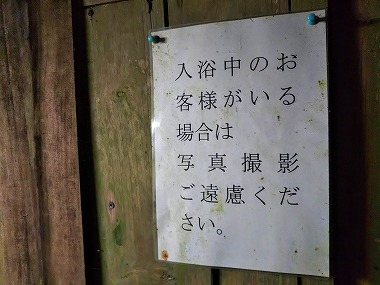 入浴中のお
客様がいる
場合は
写真撮影
ご遠慮くだ
さい。